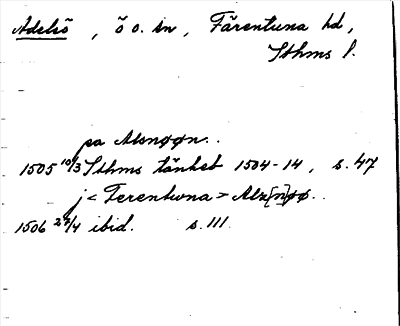 Adelsö, ö o. sn, Färentuna hd,
Sthms l.
pa Alsnøøn..
1505 10/3 Sthms tänkeb 1504-14, s. 47
j < Ferentwna > Alz[n]øø..
1506 27/4 ibid. s. 111.